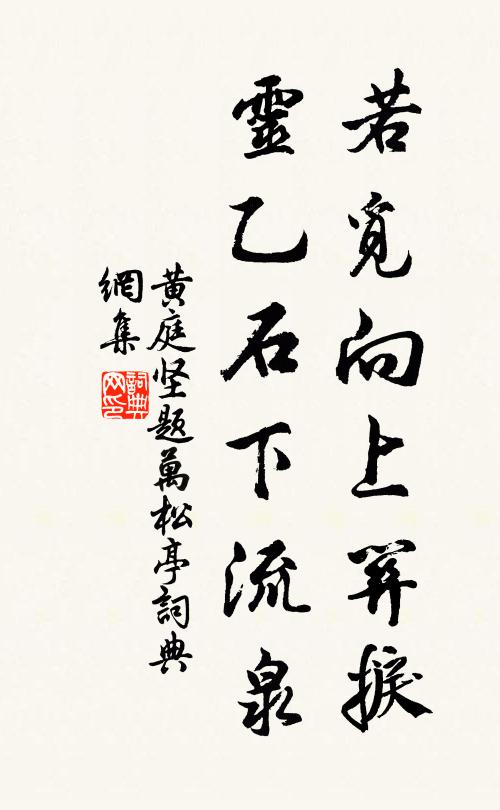 若覓向上關捩
靈乙石下流泉
黃庭坚题萬松亭詞典
網集
詞典
网印